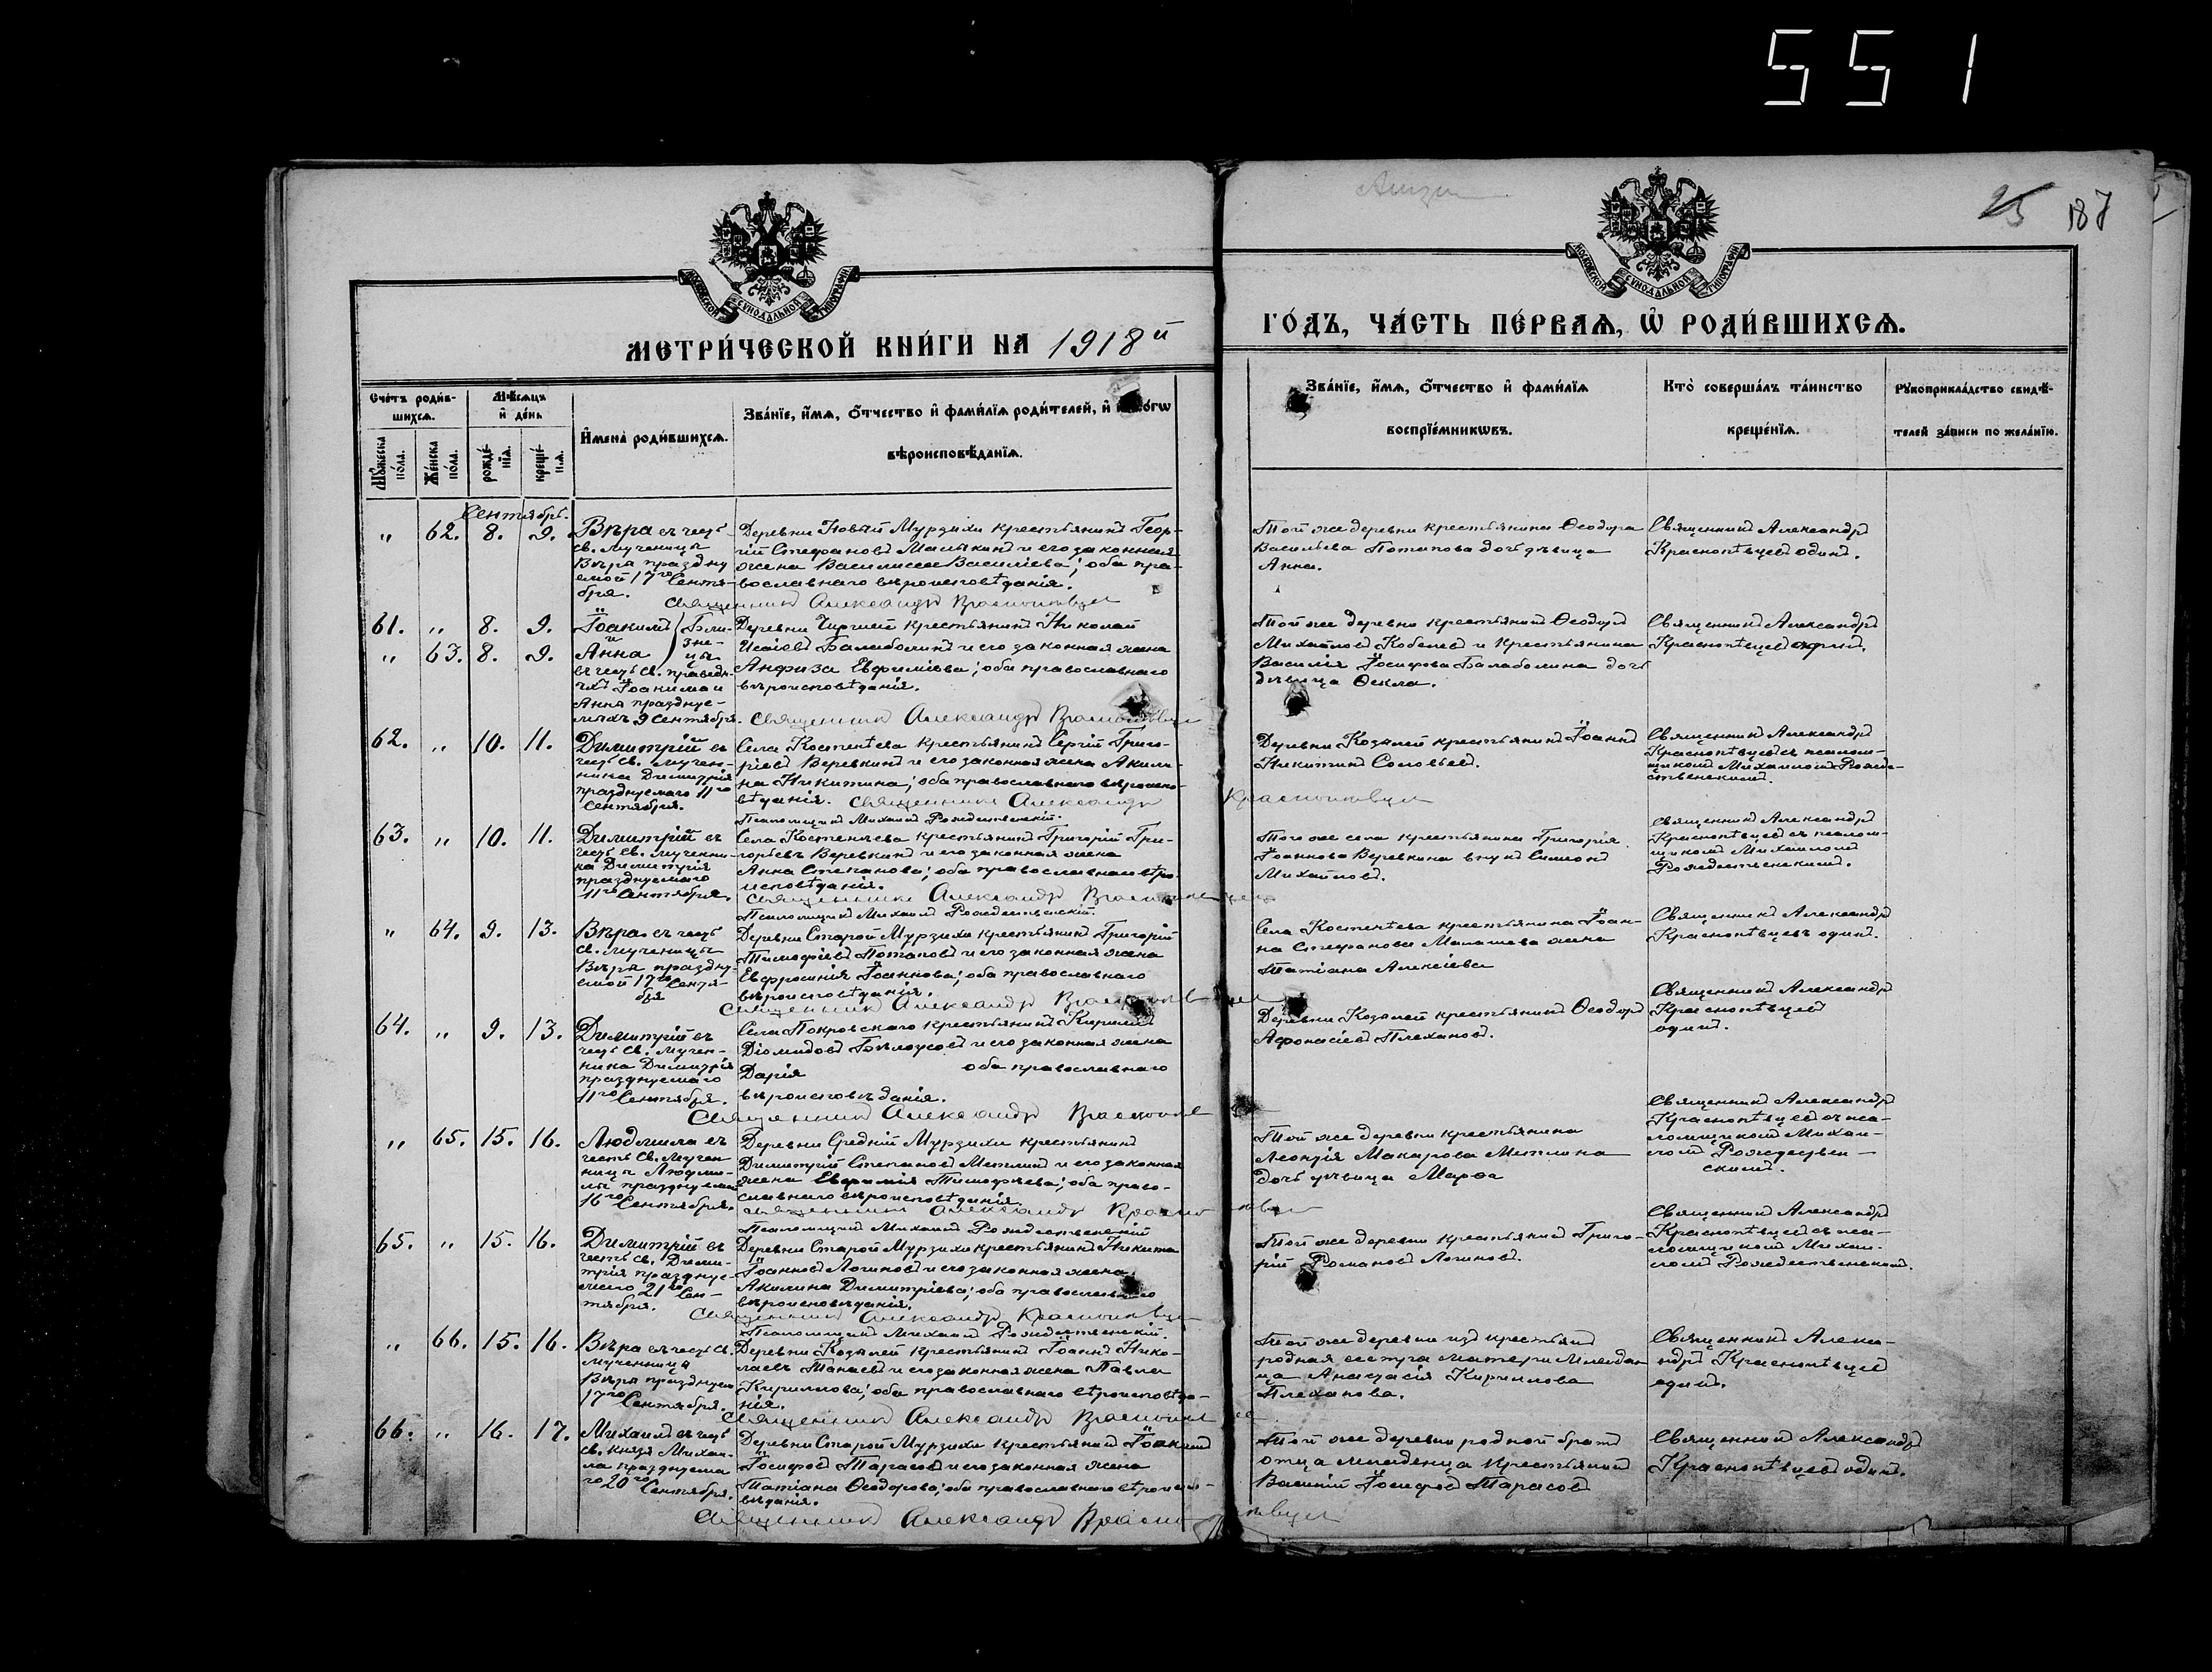 551
25 187
МОСКОВСКОЙ СѴНОДАЛЬНОЙ ТИПОГРАФІИ
МОСКОВСКОЙ СѴНОДАЛЬНОЙ ТИПОГРАФІИ
МЕТРИ́ЧЕСКОЙ КНИ́ГИ НА 1918й
ГО́ДЪ, ЧА́СТЬ ПЕ́РВАѦ, Ѡ҆ РОДИ́ВШИХСѦ.
Сче́тъ роди́в-
шихсѧ.
Мꙋ́жеска по́ла.
Же́нска по́ла.
Мѣ́сѧцъ
и҆ де́нь
рожде́-
нїѧ.
креще́-
нїѧ.
И҆мена̀ роди́вшихсѧ.
Зва́нїе, и҆́мѧ, ѻ҆́тчество и҆ фамѝлїѧ роди́телей, и҆
вѣроисповѣ́данїѧ.
Зва́нїе, и҆́мѧ, ѻ҆́тчество и҆ фамѝлїѧ
воспрїе́мникѡвъ.
Кто̀ соверша́лъ та́инство
креще́нїѧ.
Рꙋкоприкла́дство свидѣ́-
телей за́писи по жела́нїю.
Сентябрь.
" 62. 8. 9.
Вѣра въ честь
св. мученицы
Вѣры праздну
емой 17го Сентя-
бря.
Деревни Новый Мурзихи крестьянинъ Геор-
гій Стефановъ Малыкинъ и его законная
жена Василисса Василіева; оба пра-
вославнаго вѣроисповѣданія.
Священникъ Александръ Краснопѣвцевъ
Той же деревни крестьянина Ѳеодора
Васильева Потапова дочь дѣвица
Анна.
Священникъ Александръ
Краснопѣвцевъ одинъ.
61. " 8. 9.
" 63. 8. 9.
Іоакимъ
и
Анна
Близ-
не-
цы
въ честь св. праведн-
ыхъ Іоакима и
Анны празднуе-
мыхъ 9 Сентября.
Деревни Чирпей крестьянинъ Николай
Исаіевъ Балаболинъ и его законная жена
Анфиза Евфиміева; оба православнаго
вѣроисповѣданія.
Священникъ Александръ Краснопѣвцевъ
Той же деревни крестьянинъ Ѳеодоръ
Михайловъ Кобелевъ и крестьянина
Василія Іосифова Балаболина дочь
дѣвица Ѳекла.
Священникъ Александръ
Краснопѣвцевъ одинъ.
62. " 10. 11.
Димитрій въ
честь св. мучен-
ника Димитрія
празднуемаго 11го
Сентября.
Села Костенѣева крестьянинъ Сергій Григо-
ріевъ Веревкинъ и его законная жена Акили-
на Никитина; оба православнаго вѣроиспо-
вѣданія. Священникъ Александръ Краснопѣвцевъ
Псаломщикъ Михаилъ Рождественскій.
Деревни Козылей крестьянинъ Іоаннъ
Никитинъ Соловьевъ.
Священникъ Александръ
Краснопѣвцевъ съ псалом-
щикомъ Михаиломъ Рожде-
ственскимъ.
63. " 10. 11.
Димитрій въ
честь св. мученни-
ка Димитрія
празднуемаго
11го Сентября.
Села Костенѣева крестьянинъ Григорій Гри-
горьевъ Веревкинъ и его законная жена
Анна Степанова; оба православнаго вѣро-
исповѣданія.
Священникъ Александръ Краснопѣвцевъ
Псаломщикъ Михаилъ Рождественскій.
Того же села крестьянина Григорія
Іоаннова Веревкина внукъ Симеонъ
Михайловъ.
Священникъ Александръ
Краснопѣвцевъ съ псалом-
щикомъ Михаиломъ
Рождественскимъ.
" 64. 9. 13.
Вѣра въ честь
св. мученицы
Вѣры праздну-
емой 17го Сентя-
бря
Деревни Старой Мурзихи крестьянинъ Григорій
Тимофіевъ Потаповъ и его законная жена
Евфросинія Іоаннова; оба православнаго
вѣроисповѣданія.
Священникъ Александръ Краснопѣвцевъ
Села Костенѣева крестьянина Іоан-
на Стефанова Малашева жена
Татіана Алексіева
Священникъ Александръ
Краснопѣвцевъ одинъ.
64. " 9. 13.
Димитрій въ
честь св. мучен-
ника Димитрія
празднуемаго
11го Сентября.
Села Покровскаго крестьянинъ Кириллъ
Діомидовъ Бѣлоусовъ и его законная жена
Дарія оба православнаго
вѣроисповѣданія.
Священникъ Александръ Краснопѣв
Деревни Козылей крестьянинъ Ѳеодоръ
Афонасіевъ Плехановъ.
Священникъ Александръ
Краснопѣвцевъ
одинъ.
" 65. 15. 16.
Людмила въ
честь св. мучен
ницы Людми-
лы празднуемой
16го Сентября.
Деревни Средній Мурзихи крестьянинъ
Димитрій Степановъ Метлинъ и его законная
жена Евфимія Тимофѣева; оба право-
славнаго вѣроисповѣданія.
Священникъ Александръ Краснопѣвцевъ
Псаломщикъ Михаилъ Рождественскій
Той же деревни крестьянина
Леонтія Макарова Метлина
дочь дѣвица Марѳа
Священникъ Александръ
Краснопѣвцевъ съ пса-
ломщикомъ Михаи-
ломъ Рождествен-
скимъ.
65. " 15. 16.
Димитрій въ
честь св. Дими-
трія празднуе-
маго 21го Сен-
тября.
Деревни Старой Мурзихи крестьянинъ Никита
Іоанновъ Логиновъ и его законная жена
Акилина Димитріева; оба православнаго
вѣроисповѣданія.
Священникъ Александръ Краснопѣвцевъ
Псаломщикъ Михаилъ Рождественскій.
Той же деревни крестьянинъ Григо-
рій Романовъ Логиновъ.
Священникъ Александръ
Краснопѣвцевъ съ пса-
ломщикомъ Михаи-
ломъ Рождественскимъ.
" 66. 15. 16.
Вѣра въ честь св.
мученницы
Вѣры празднуем
17го Сентября.
Деревни Козылей крестьянинъ Іоаннъ Нико-
лаевъ Танаевъ и его законная жена Павла
Кириллова; оба православнаго вѣроисповѣда-
нія.
Священникъ Александръ Краснопѣвцевъ
Той же деревни изъ крестьянъ
родная сестра матери младен-
ца Анастасія Кириллова
Плеханова.
Священникъ Алекса-
ндръ Краснопѣвцевъ
одинъ.
66. " 16. 17.
Михаилъ въ честь
св. князя Михаи-
ла празднуема
го 20го Сентября.
Деревни Старой Мурзихи крестьянинъ Іоакимъ
Іосифовъ Тарасовъ и его законная жена
Татіана Ѳеодорова; оба православнаго вѣроиспо-
вѣданія.
Священникъ Александръ Краснопѣвцевъ
Той же деревни родной братъ
отца младенца крестьянинъ
Василій Іосифовъ Тарасовъ
Священникъ Александръ
Краснопѣвцевъ одинъ.